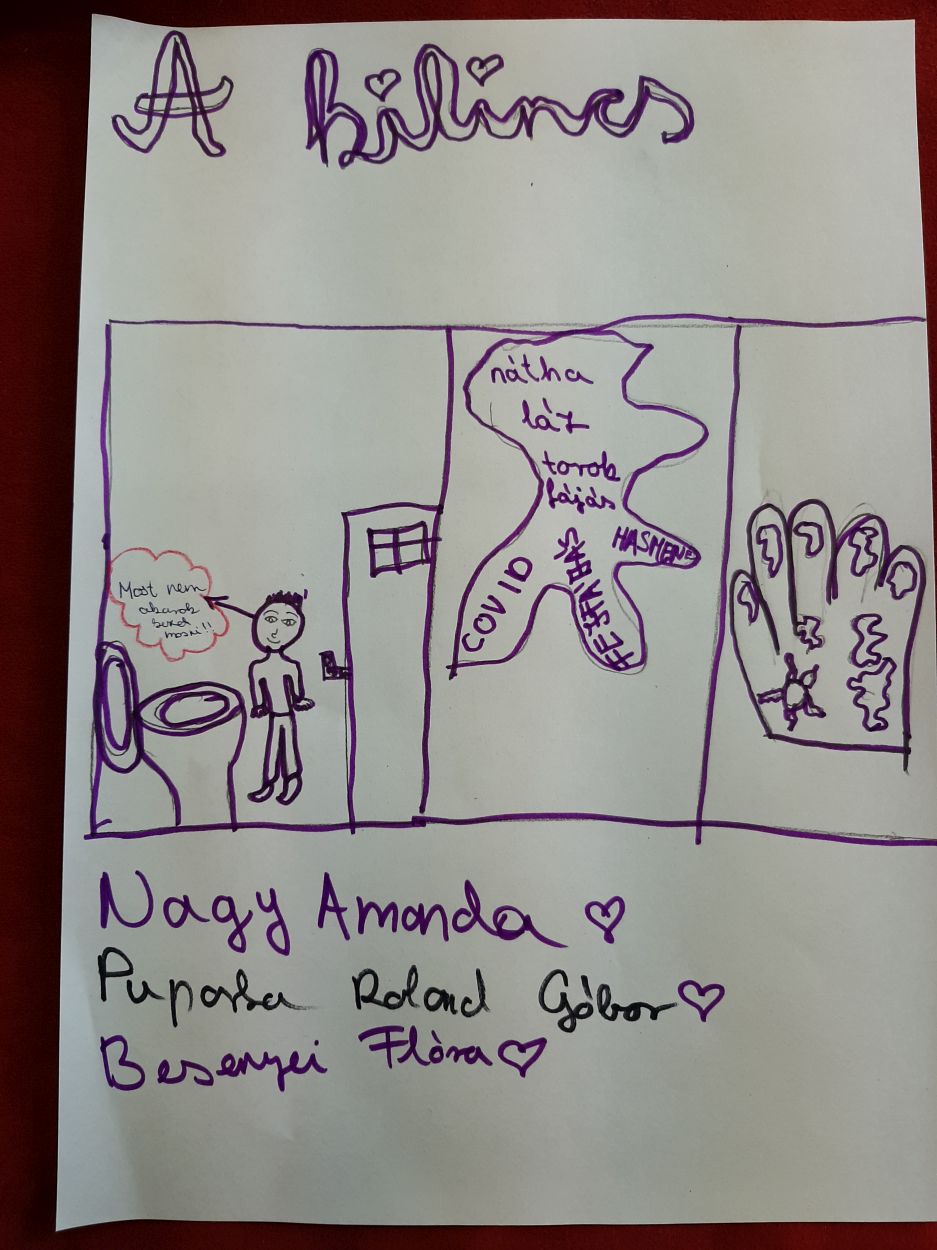 A kilincs
Most nem
akarok
kezet
mosni!!
nátha
láz
torok
fájás
COVID
HASMENÉS
Nagy Amanda
Roland Gábor
Besenyei Flóra